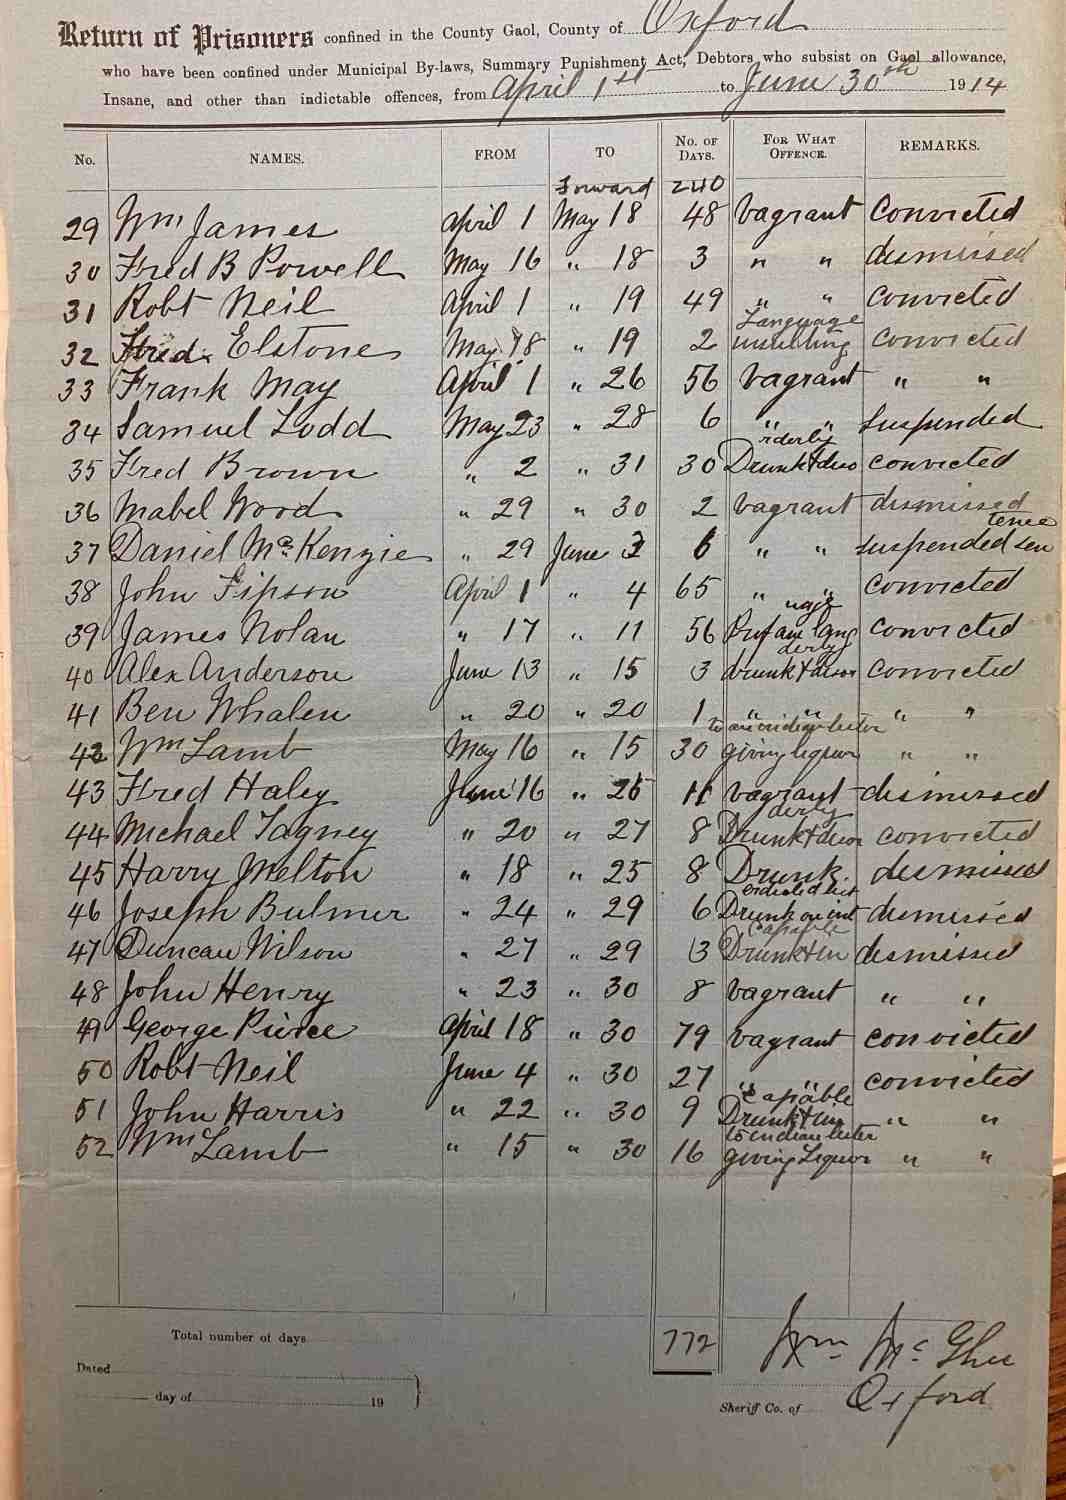 Return of Prisoners confined in the County Gaol, County of Oxford
who have been confined under Municipal By-laws, Summary Punishment Act, Debtors who subsist on Gaol allowance,
Insane, and other than indictable offences, from April 1st to June 30th 1914
No. NAMES. FROM TO No. of Days. For What Offence. REMARKS.
Forward 240
29 Wm James April 1 May 18 48 vagrant convicted
30 Fred B Powell May 16 " 18 3 " " dismissed
31 Robt Neil April 1 " 19 49 " " convicted
32 Fred Elstone May 18 " 19 2 insulting Language convicted
33 Frank May April 1 " 26 56 vagrant " "
34 Samuel Todd May 23 " 28 6 " " suspended
35 Fred Brown " 2 " 31 30 Drunk + disorderly convicted
36 Mabel Wood " 29 " 30 2 vagrant dismissed
37 Daniel McKenzie " 29 June 3 6 " " suspended sentence
38 John Fipson April 1 " 4 65 " " convicted
39 James Nolan " 17 " 11 56 Profane language convicted
40 Alex Anderson June 13 " 15 3 drunk + disorderly convicted
41 Ben Whalen " 20 " 20 1 " " " "
42 Wm Lamb May 16 " 15 30 giving liquor to an indian " "
43 Fred Haley June 16 " 26 11 vagrant dismissed
44 Michael Tagney " 20 " 27 8 Drunk + disorderly convicted
45 Harry Melton " 18 " 25 8 Drunk dismissed
46 Joseph Bulmer " 24 " 29 6 Drunk on interdicted list dismissed
47 Duncan Wilson " 27 " 29 3 Drunk + incapable dismissed
48 John Henry " 23 " 30 8 vagrant " "
49 George Pierce April 18 " 30 79 vagrant convicted
50 Robt Neil June 4 " 30 27 " " convicted
51 John Harris " 22 " 30 9 Drunk + incapable " "
52 Wm Lamb " 15 " 30 16 giving Liquor to indian " "
Total number of days 772
Wm McGhee
Dated
day of 19
Sheriff Co. of Oxford